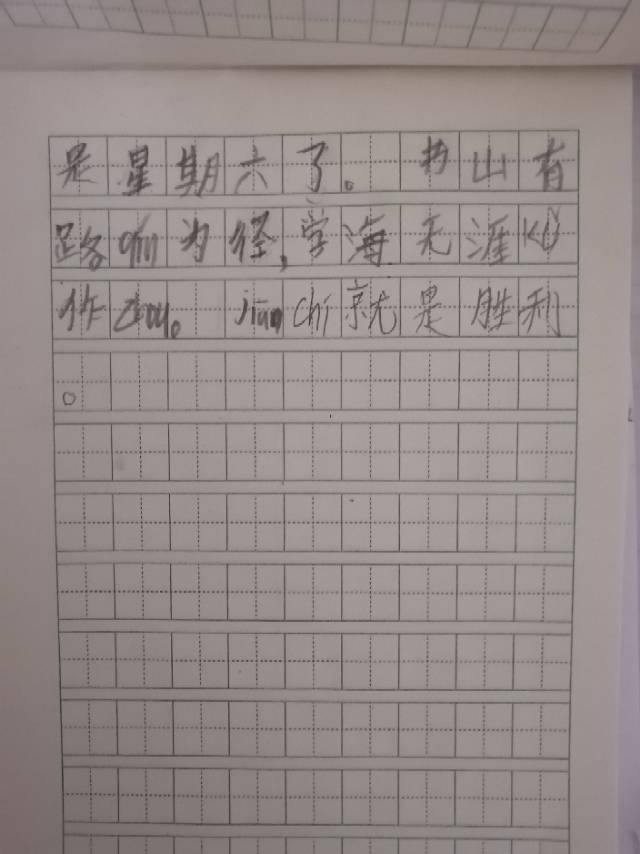 是星期六了。 书山有
路qin为径,学海无涯kǔ
作zhou。 jianchi就是胜利
。